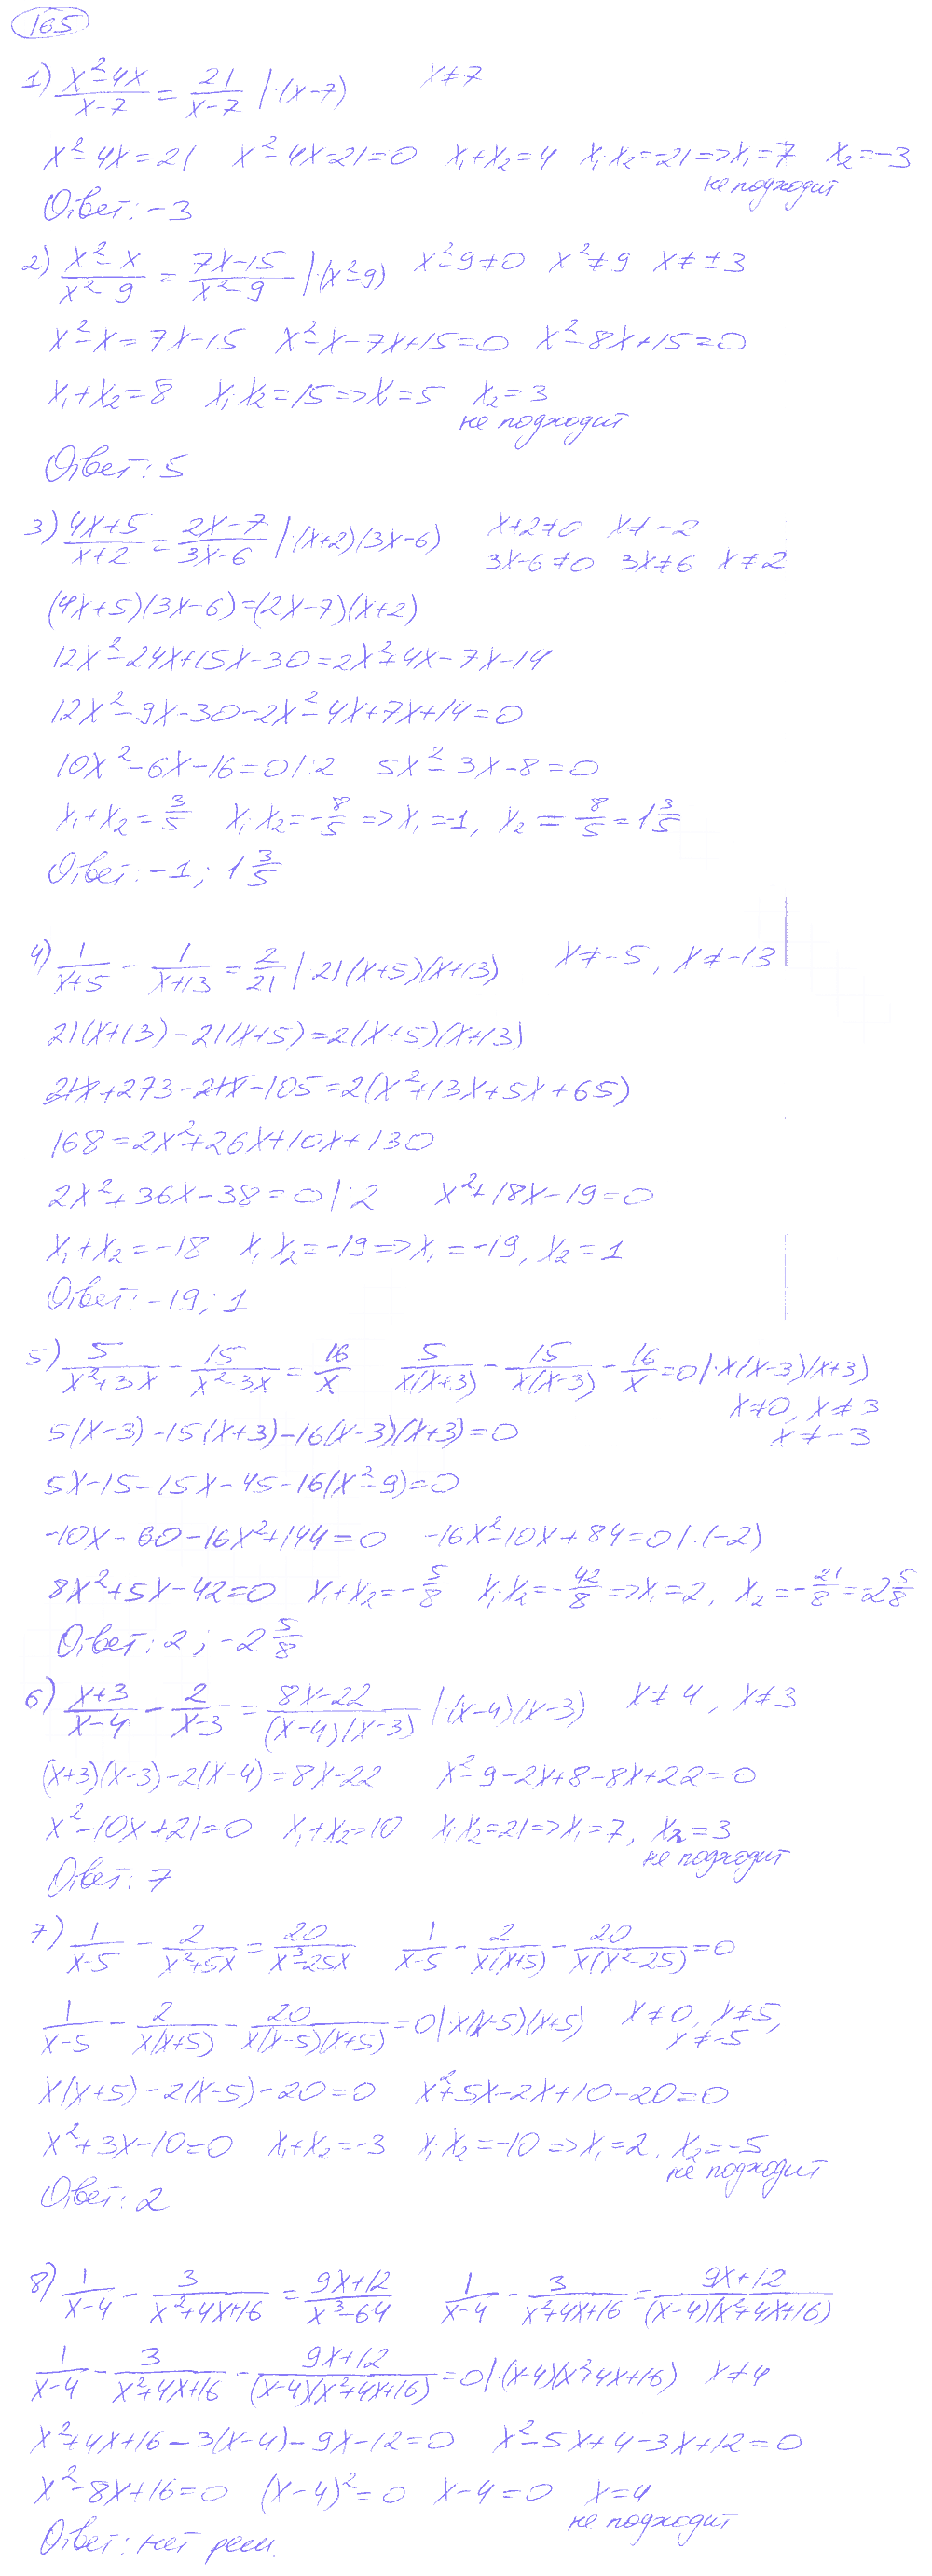 165
1) (x²-4x)/(x-7) = 21/(x-7) |·(x-7) x≠7
x²-4x=21 x²-4x-21=0 x₁+x₂=4 x₁·x₂=-21=>x₁=7 x₂=-3
не подходит
Ответ: -3
2) (x²-x)/(x²-9) = (7x-15)/(x²-9) |·(x²-9) x²-9≠0 x²≠9 x≠±3
x²-x=7x-15 x²-x-7x+15=0 x²-8x+15=0
x₁+x₂=8 x₁·x₂=15=>x₁=5 x₂=3
не подходит
Ответ: 5
3) (4x+5)/(x+2) = (2x-7)/(3x-6) |·(x+2)(3x-6) x+2≠0 x≠-2
3x-6≠0 3x≠6 x≠2
(4x+5)(3x-6)=(2x-7)(x+2)
12x²-24x+15x-30=2x²+4x-7x-14
12x²-9x-30-2x²-4x+7x+14=0
10x²-6x-16=0|:2 5x²-3x-8=0
x₁+x₂=3/5 x₁·x₂=-8/5=>x₁=-1, x₂=8/5=1 3/5
Ответ: -1; 1 3/5
4) 1/(x+5) - 1/(x+13) = 2/21 | 21(x+5)(x+13) x≠-5, x≠-13
21(x+13)-21(x+5)=2(x+5)(x+13)
21x+273-21x-105=2(x²+13x+5x+65)
168=2x²+26x+10x+130
2x²+36x-38=0|:2 x²+18x-19=0
x₁+x₂=-18 x₁·x₂=-19=>x₁=-19, x₂=1
Ответ: -19; 1
5) 5/(x²+3x) - 15/(x²-3x) = 16/x 5/(x(x+3)) - 15/(x(x-3)) - 16/x = 0|·x(x-3)(x+3)
x≠0, x≠3
x≠-3
5(x-3)-15(x+3)-16(x-3)(x+3)=0
5x-15-15x-45-16(x²-9)=0
-10x-60-16x²+144=0 -16x²-10x+84=0|:(-2)
8x²+5x-42=0 x₁+x₂=-5/8 x₁·x₂=-42/8=>x₁=2, x₂=-21/8=-2 5/8
Ответ: 2; -2 5/8
6) (x+3)/(x-4) - 2/(x-3) = (8x-22)/((x-4)(x-3)) |·(x-4)(x-3) x≠4, x≠3
(x+3)(x-3)-2(x-4)=8x-22 x²-9-2x+8-8x+22=0
x²-10x+21=0 x₁+x₂=10 x₁·x₂=21=>x₁=7, x₂=3
не подходит
Ответ: 7
7) 1/(x-5) - 2/(x²+5x) = 20/(x³-25x) 1/(x-5) - 2/(x(x+5)) - 20/(x(x²-25)) = 0
1/(x-5) - 2/(x(x+5)) - 20/(x(x-5)(x+5)) = 0|·x(x-5)(x+5) x≠0, x≠5,
x≠-5
x(x+5)-2(x-5)-20=0 x²+5x-2x+10-20=0
x²+3x-10=0 x₁+x₂=-3 x₁·x₂=-10=>x₁=2, x₂=-5
не подходит
Ответ: 2
8) 1/(x-4) - 3/(x²+4x+16) = (9x+12)/(x³-64) 1/(x-4) - 3/(x²+4x+16) = (9x+12)/((x-4)(x²+4x+16))
1/(x-4) - 3/(x²+4x+16) - (9x+12)/((x-4)(x²+4x+16)) = 0|·(x-4)(x²+4x+16) x≠4
x²+4x+16-3(x-4)-9x-12=0 x²-5x+4-3x+12=0
x²-8x+16=0 (x-4)²=0 x-4=0 x=4
не подходит
Ответ: нет реш.